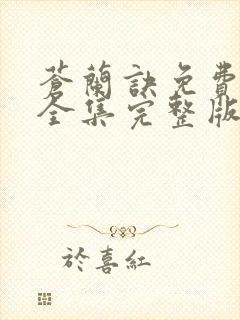 蒼蘭訣免費
全集完整版
於喜紅